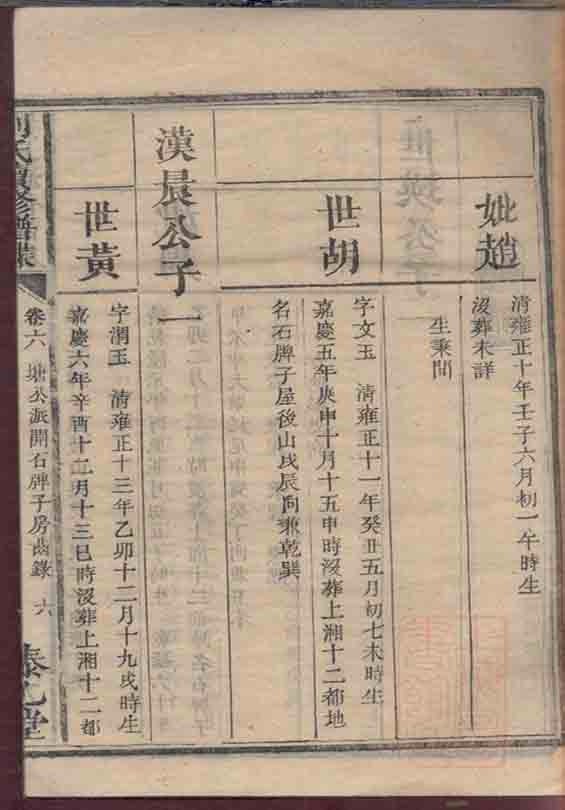 妣趙
清雍正十年壬子六月初一午時生
沒葬未詳
生秉間
世胡
字文玉 清雍正十一年癸丑五月初七未時生
嘉慶五年庚申十月十五申時沒葬上湘十二都地
名石牌子屋後山戌辰向兼乾巽
漢晨公子一
世黃
字渭玉 清雍正十三年乙卯十二月十九戌時生
嘉慶六年辛酉十二月十三巳時沒葬上湘十二都
氏續修譜
卷六 塘公派開石牌子房齒錄 六
堂